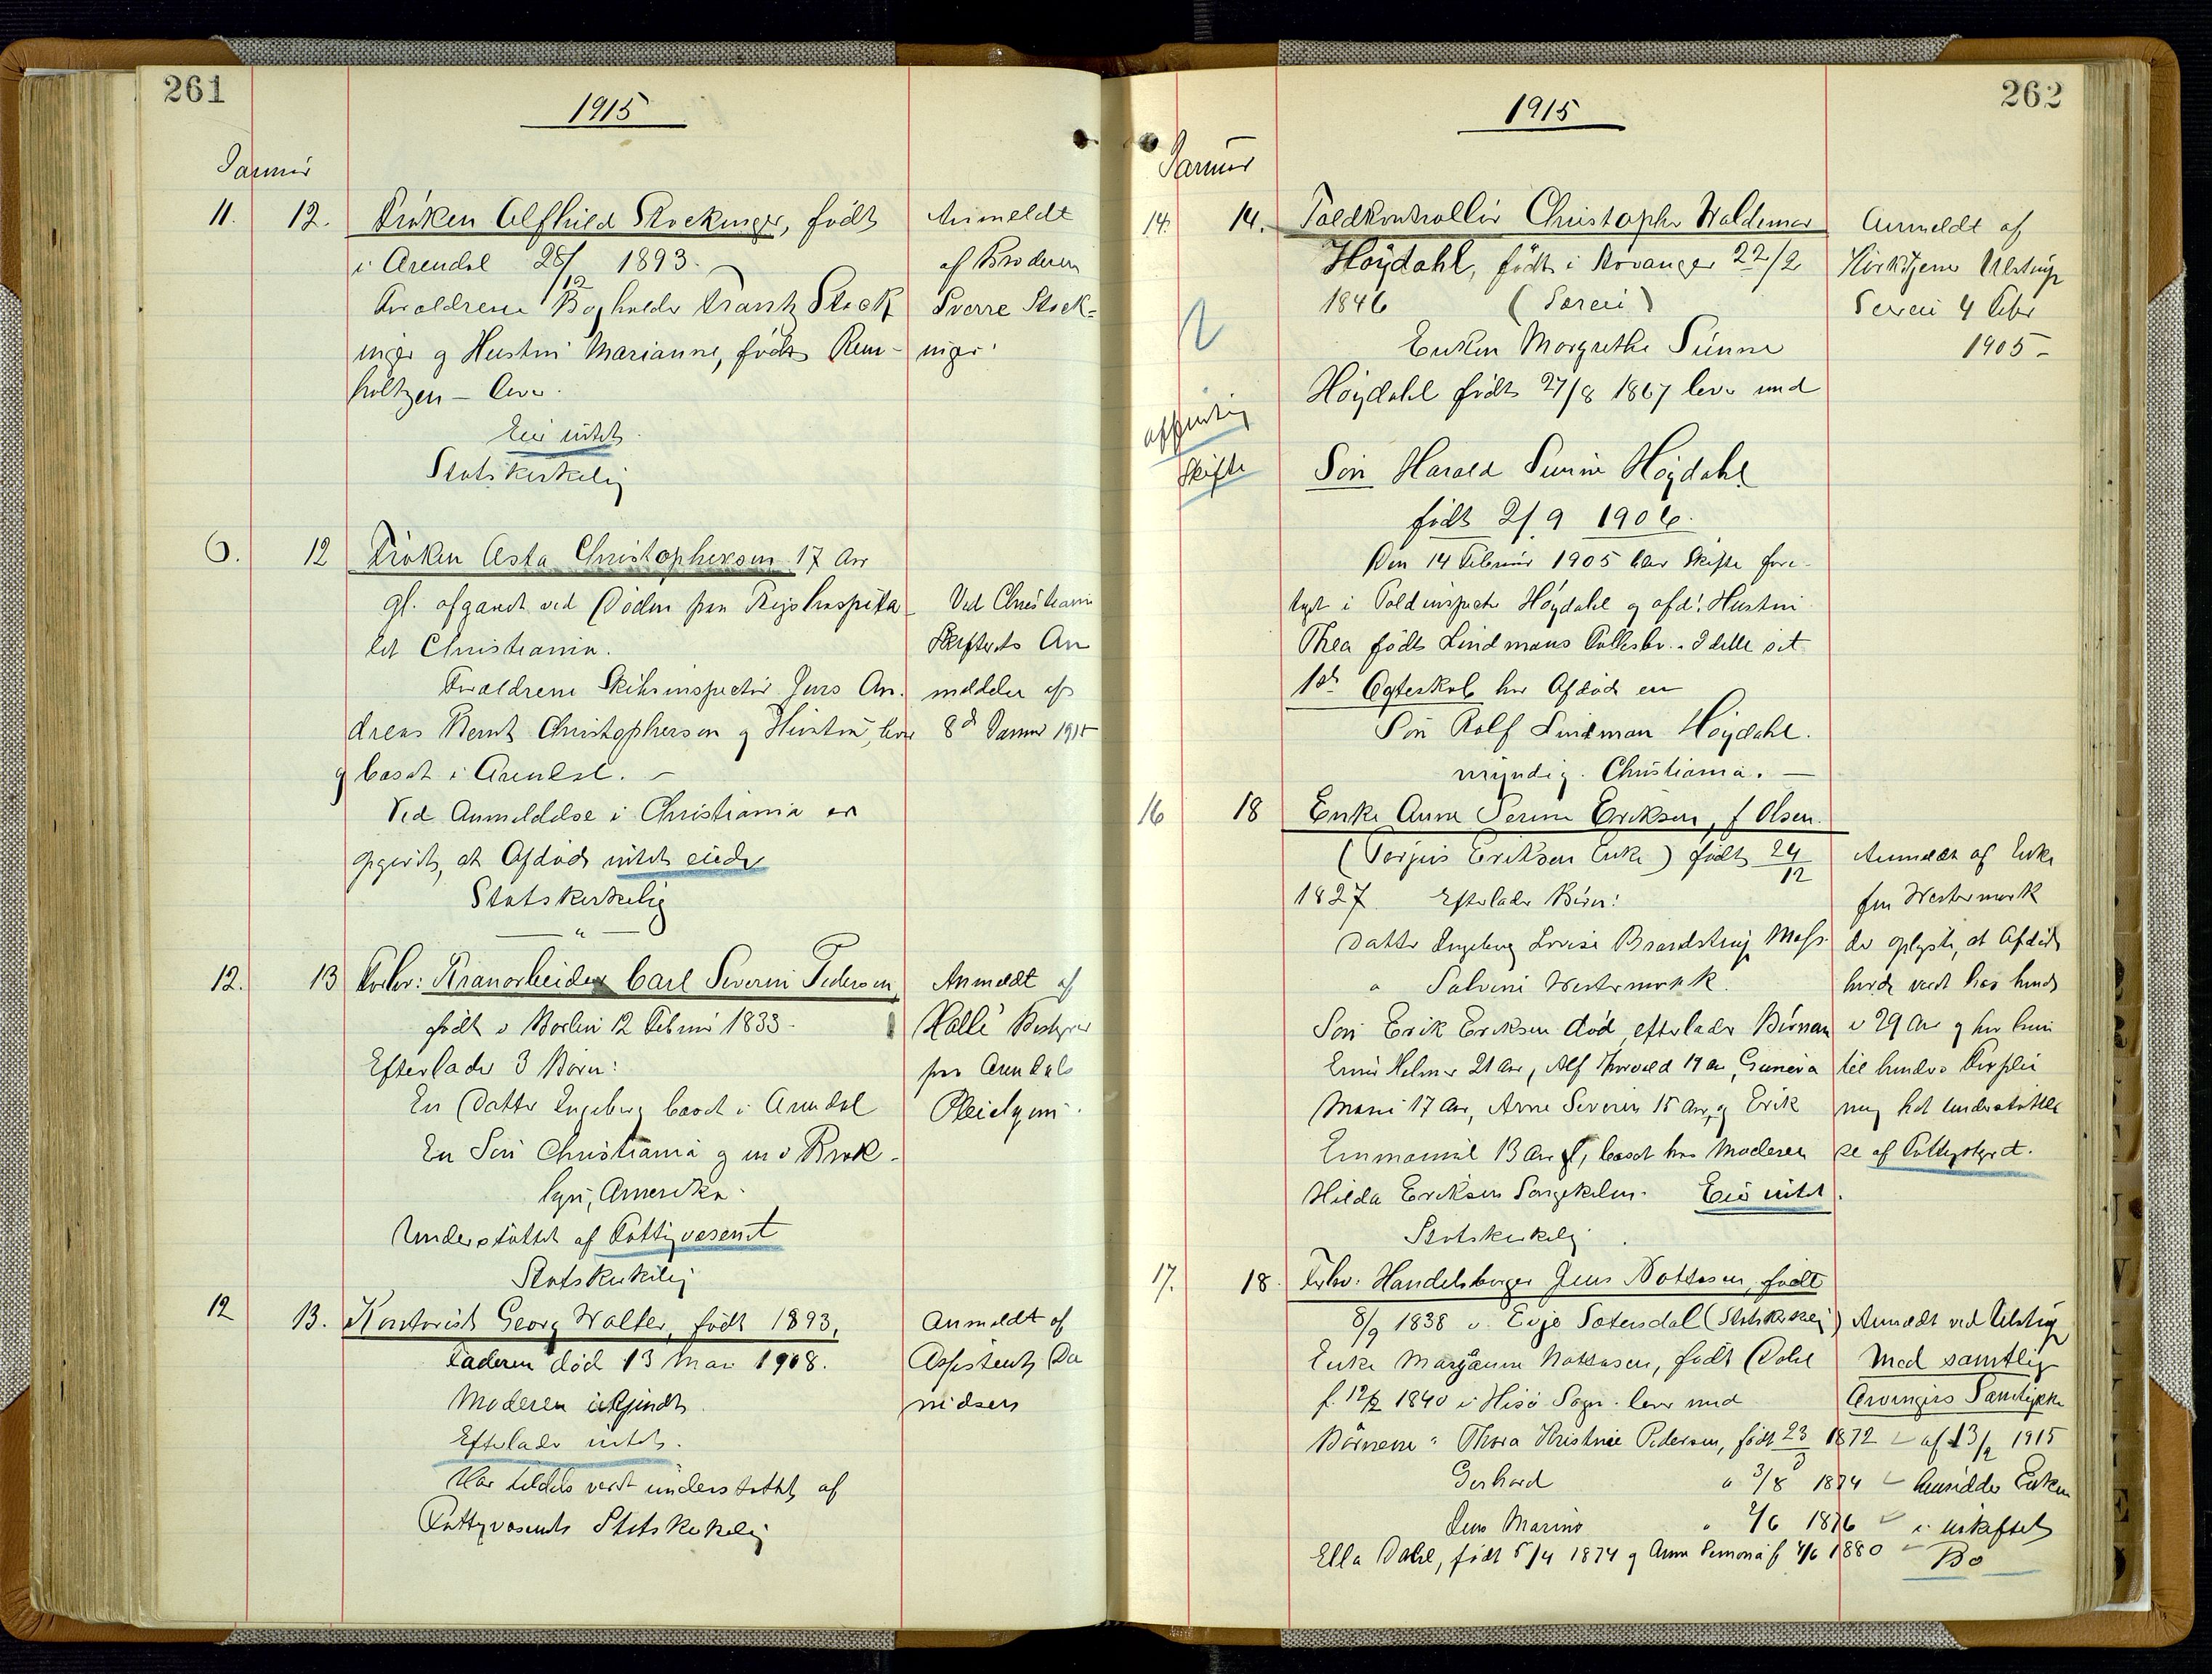 261
1915
Januar
11. 12. Frøken Alfhild Stockinger, født
i Arendal 28/12 1893.
Forældrene Bogholder Frantz Stock
inger og Hustru Marianne, født Rem-
holtzen - lever.
Eier intet.
Statskirkelig
Anmeldt
af Broderen
Sverre Stock-
inger.
6. 12 Frøken Asta Christophersen 17 Aar
gl. afgaaet ved Døden paa Rigshospita
let Christiania.
Forældrene Skibsinspectør Jens An-
dreas Bernt Christophersen og Hustru, lever
og bosat i Arendal. -
Ved Anmeldelse i Christiania er
opgivet, at Afdøde intet eiede
Statskirkelig
Ved Christiania
Skifterets An
meldelse af
8de Januar 1915
12. 13 Forhv: Kranarbeider Carl Severin Pedersen,
født i 12 Februar 1833.
Efterlader 3 Børn:
En Datter Ingeborg bosat i Arendal
En Søn Christiania og en i Brook-
lyn, Amerika.
Understøttet af Fattigvæsenet
Statskirkelig
Anmeldt af
Kallé Bestyrer
paa Arendals
Pleiehjem.
12 13. Kontorist Georg Walter, født 1893,
Faderen død 13 Mai 1908.
Moderen ukjendt.
Efterlader intet.
Har tildels været understøttet af
Fattigvæsenet Statskirkelig
Anmeldt af
Assistent Da
nielsen
262
1915
Januar
14. 14. Toldkontrollør Christopher Waldemar
Høydahl, født i Stavanger 22/2
1846
Enken Margrethe Sunne
Høydahl født 27/8 1867 lever med
Søn Harald Sunne Høydahl
født 2/9 1906.
Den 14 Februar 1905 blev Skifte fore-
taget i Toldinspectør Høydahl og afd. Hustru
Thea født Lindmans Fællesbo. I dette sit
1ste Ægteskab har Afdøde en
Søn Rolf Lindman Høydahl.
myndig. Christiania. -
offentlig
Skifte
Anmeldt af
Kirketjener Ulstrup
4 Febr
1905 -
16 18 Enke Anna Serine Eriksen, f Olsen.
(Torjus Eriksen Enke) født 24/12
1827. Efterlader Børn:
Datter Ingeborg Lovise Brandstrup Moss
" Salvine Westermark.
Søn Erik Eriksen død efterlader Børnene
Einar Helmer 21 Aar, Alf Thorvald 19 Aar, Gunvra
Marie 17 Aar, Arne Severin 15 Aar, og Erik
Emmanuel 13 Aar, bosat hos Moderen
Hilda Eriksen Songekilen. Eier intet.
Statskirkelig
Anmeldt af Enke
fru Westermark
der oplyste, at Afdøde
havde været hos hende
i 29 Aar og har hun
til hendes Forplei
ning havt understøttel
se af Fattigstyret.
17. 18. Forhv: Handelsborger Jens Nottosen, født
8/9 1838 i Evje Sætersdal (Statskirkelig)
Enke Marjanne Nottosen, født Dahl
f. 12/2 1840 i Hisø Sogn. lever med
Børnene: Thora Kristine Pedersen, født 23 1872
Gerhard " 3/8 1874
Jens Marino " 2/6 1876
Ella Dahl, født 5/4 1874 og Anna Semona f 4/6 1880
Anmeldt ved Ulstrup
Med samtlige
Arvingers Samtykke
af 13/2 1915
hensidder Enken
i uskiftet
Bo